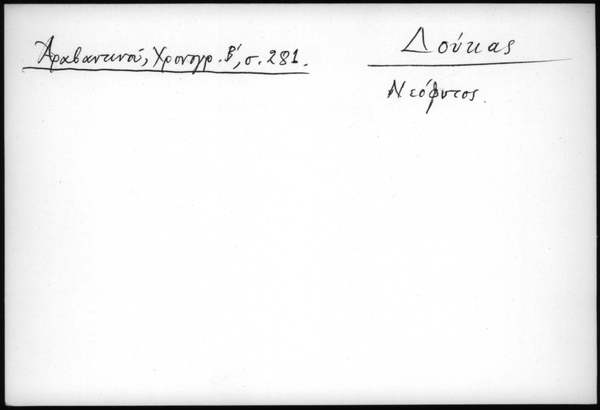 Ἀραβαντινοῦ, Χρονογρ. Β', σ. 281.
Δούκας
Νεόφυτος.